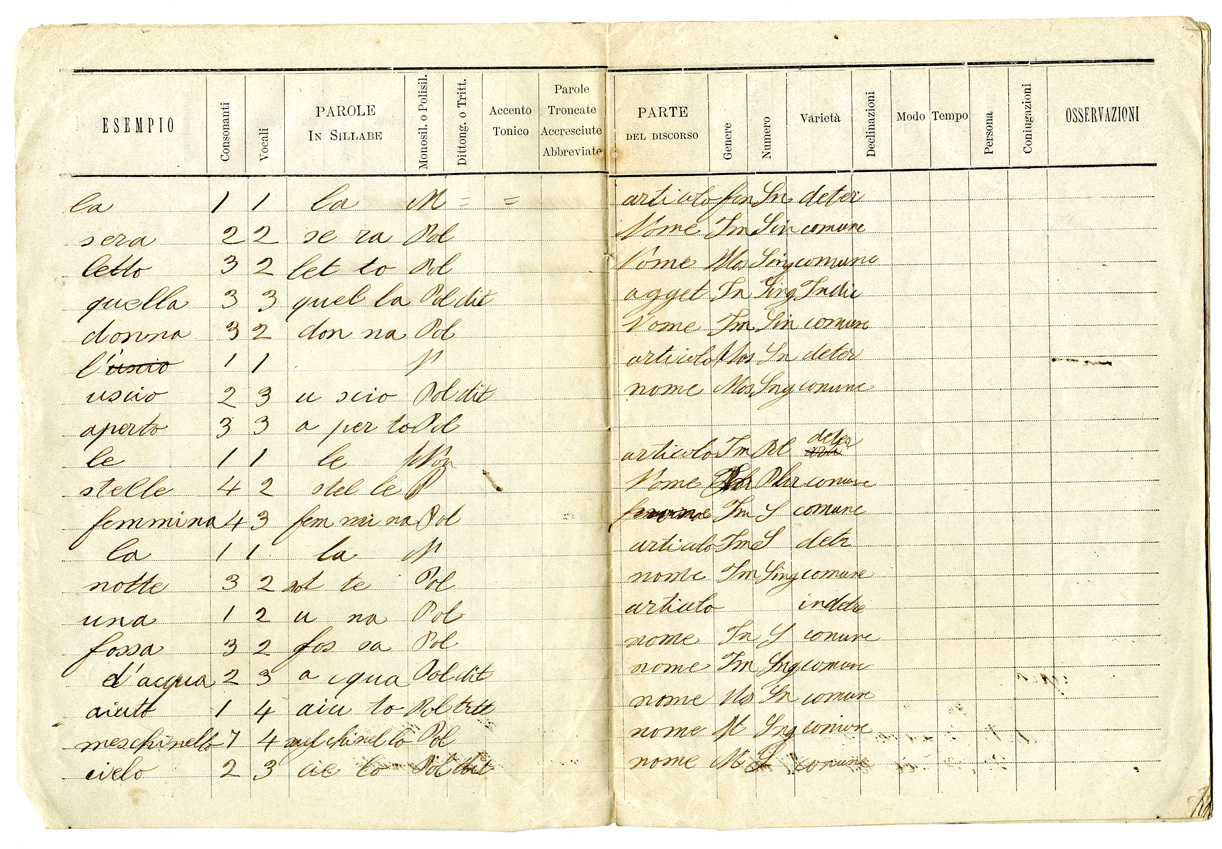 ESEMPIO Consonanti Vocali PAROLE IN SILLABE Monosil. o Polisil. Dittong. o Tritt. Accento Tonico Parole Troncate Accresciute Abbreviate PARTE DEL DISCORSO Genere Numero Varietà Declinazioni Modo Tempo Persona Coniugazioni OSSERVAZIONI
la 1 1 la M = = articolo fem Sin deter
sera 2 2 se ra Pol Nome Fm Sin comune
letto 3 2 let to Pol Nome Mas Sing comune
quella 3 3 quel la Pol dit agget Fn Sing Indic
donna 3 2 don na Pol Nome Fm Sin comune
l'uscio 1 1 M articolo Mas Sn deter
uscio 2 3 u scio Pol dit nome Mas Sng comune
aperto 3 3 a per to Pol
le 1 1 le articolo Fm Pl deter
stelle 4 2 stel le P Nome Plur comune
femmina 4 3 fem mi na Pol Fm S comune
la 1 1 la M articolo Fm S detr
notte 3 2 not te Pol nome Fm Sing comune
una 1 2 u na Pol articolo indetr
fossa 3 2 fos sa Pol nome Fn S comune
d'acqua 2 3 a cqua Pol dit nome Fm Sng comune
aiuto 1 4 aiu to Pol tritt nome Mas Sn comune
meschinello 7 4 Pol nome M Sng comune
cielo 2 3 cie lo Pol dit nome M S comune